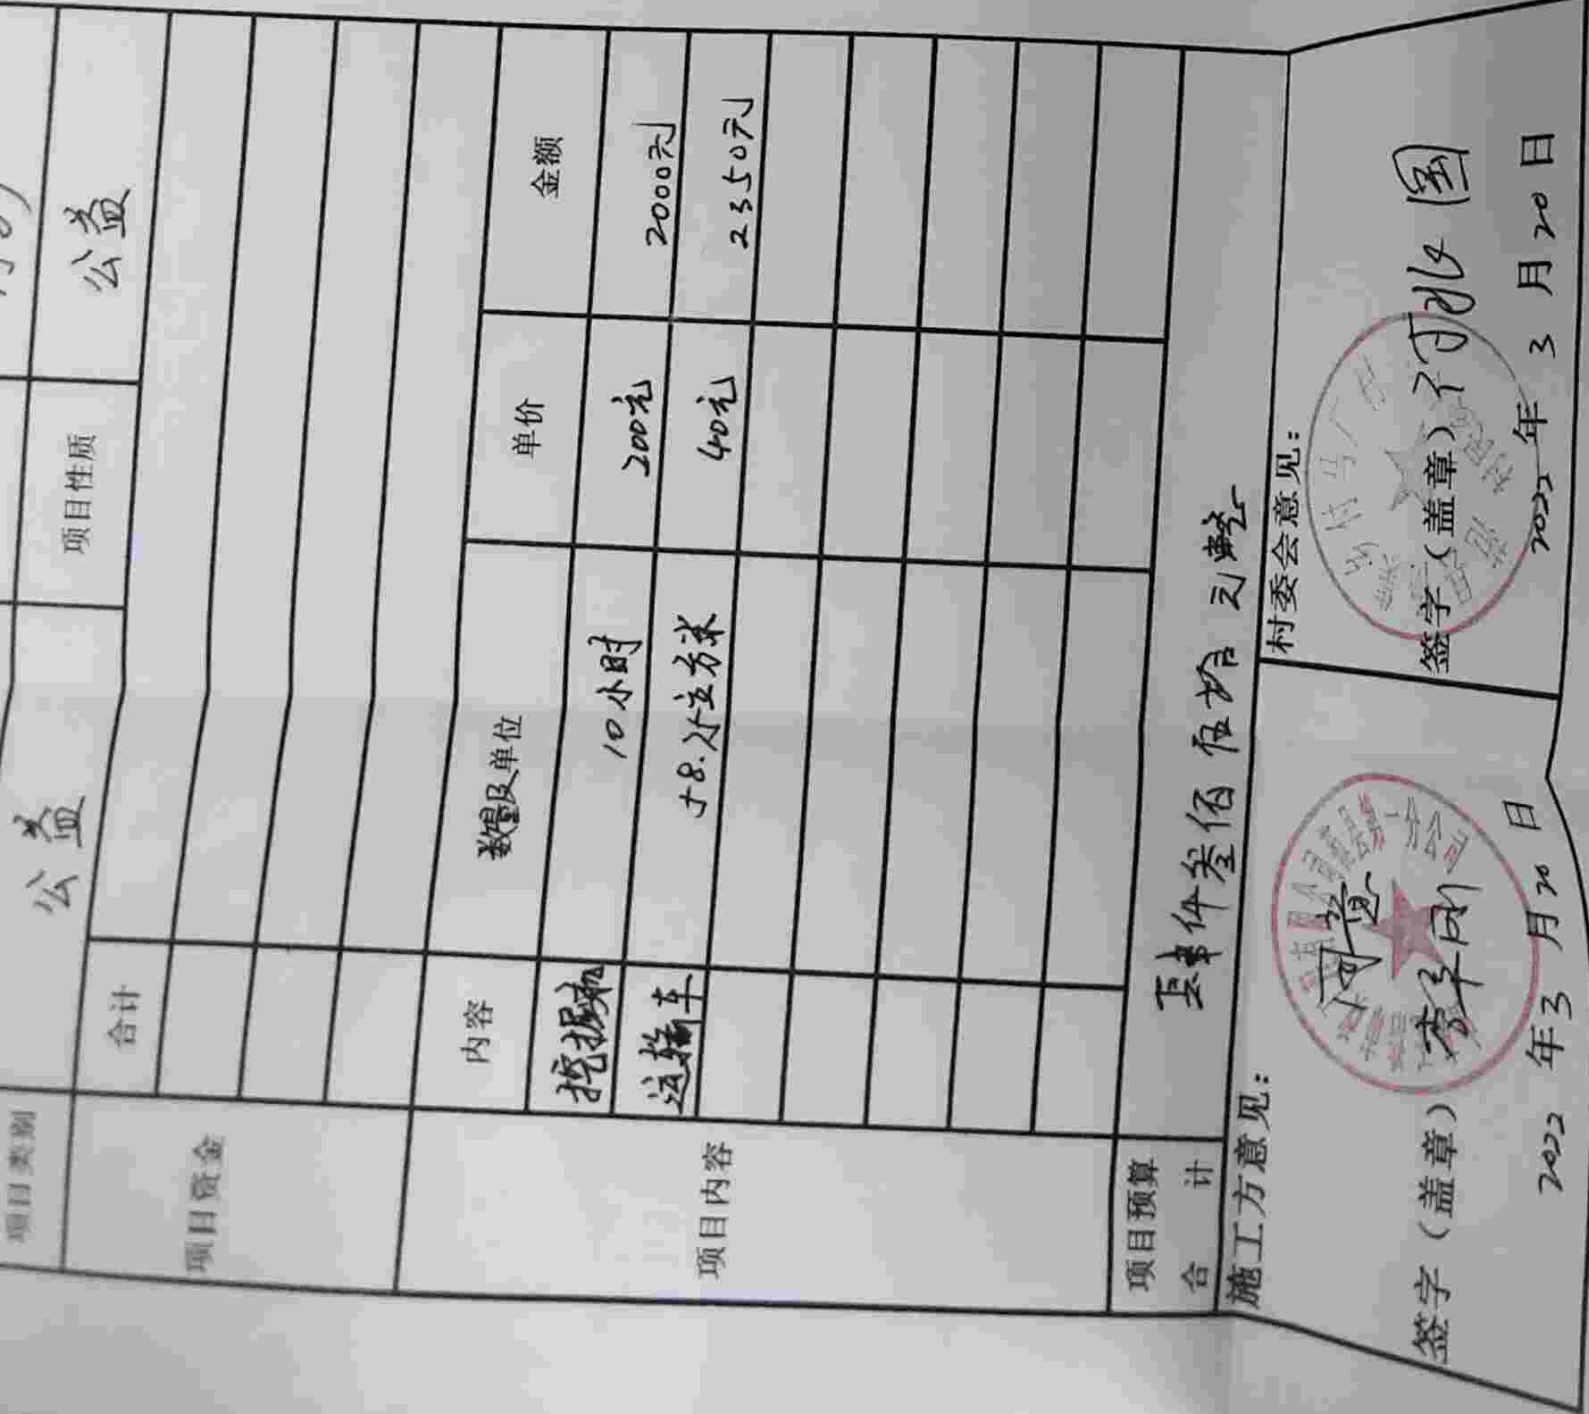 项目类别 公益 项目性质 公益
项目资金 合计
项目内容 内容 数量及单位 单价 金额
挖掘机 10小时 200元 2000元
运输车 58.75立方米 40元 2350元
项目预算合计 肆仟叁佰伍拾元整
施工方意见: 村委会意见:
同意
签字（盖章） 签字（盖章）
2022年3月20日 2022年3月20日